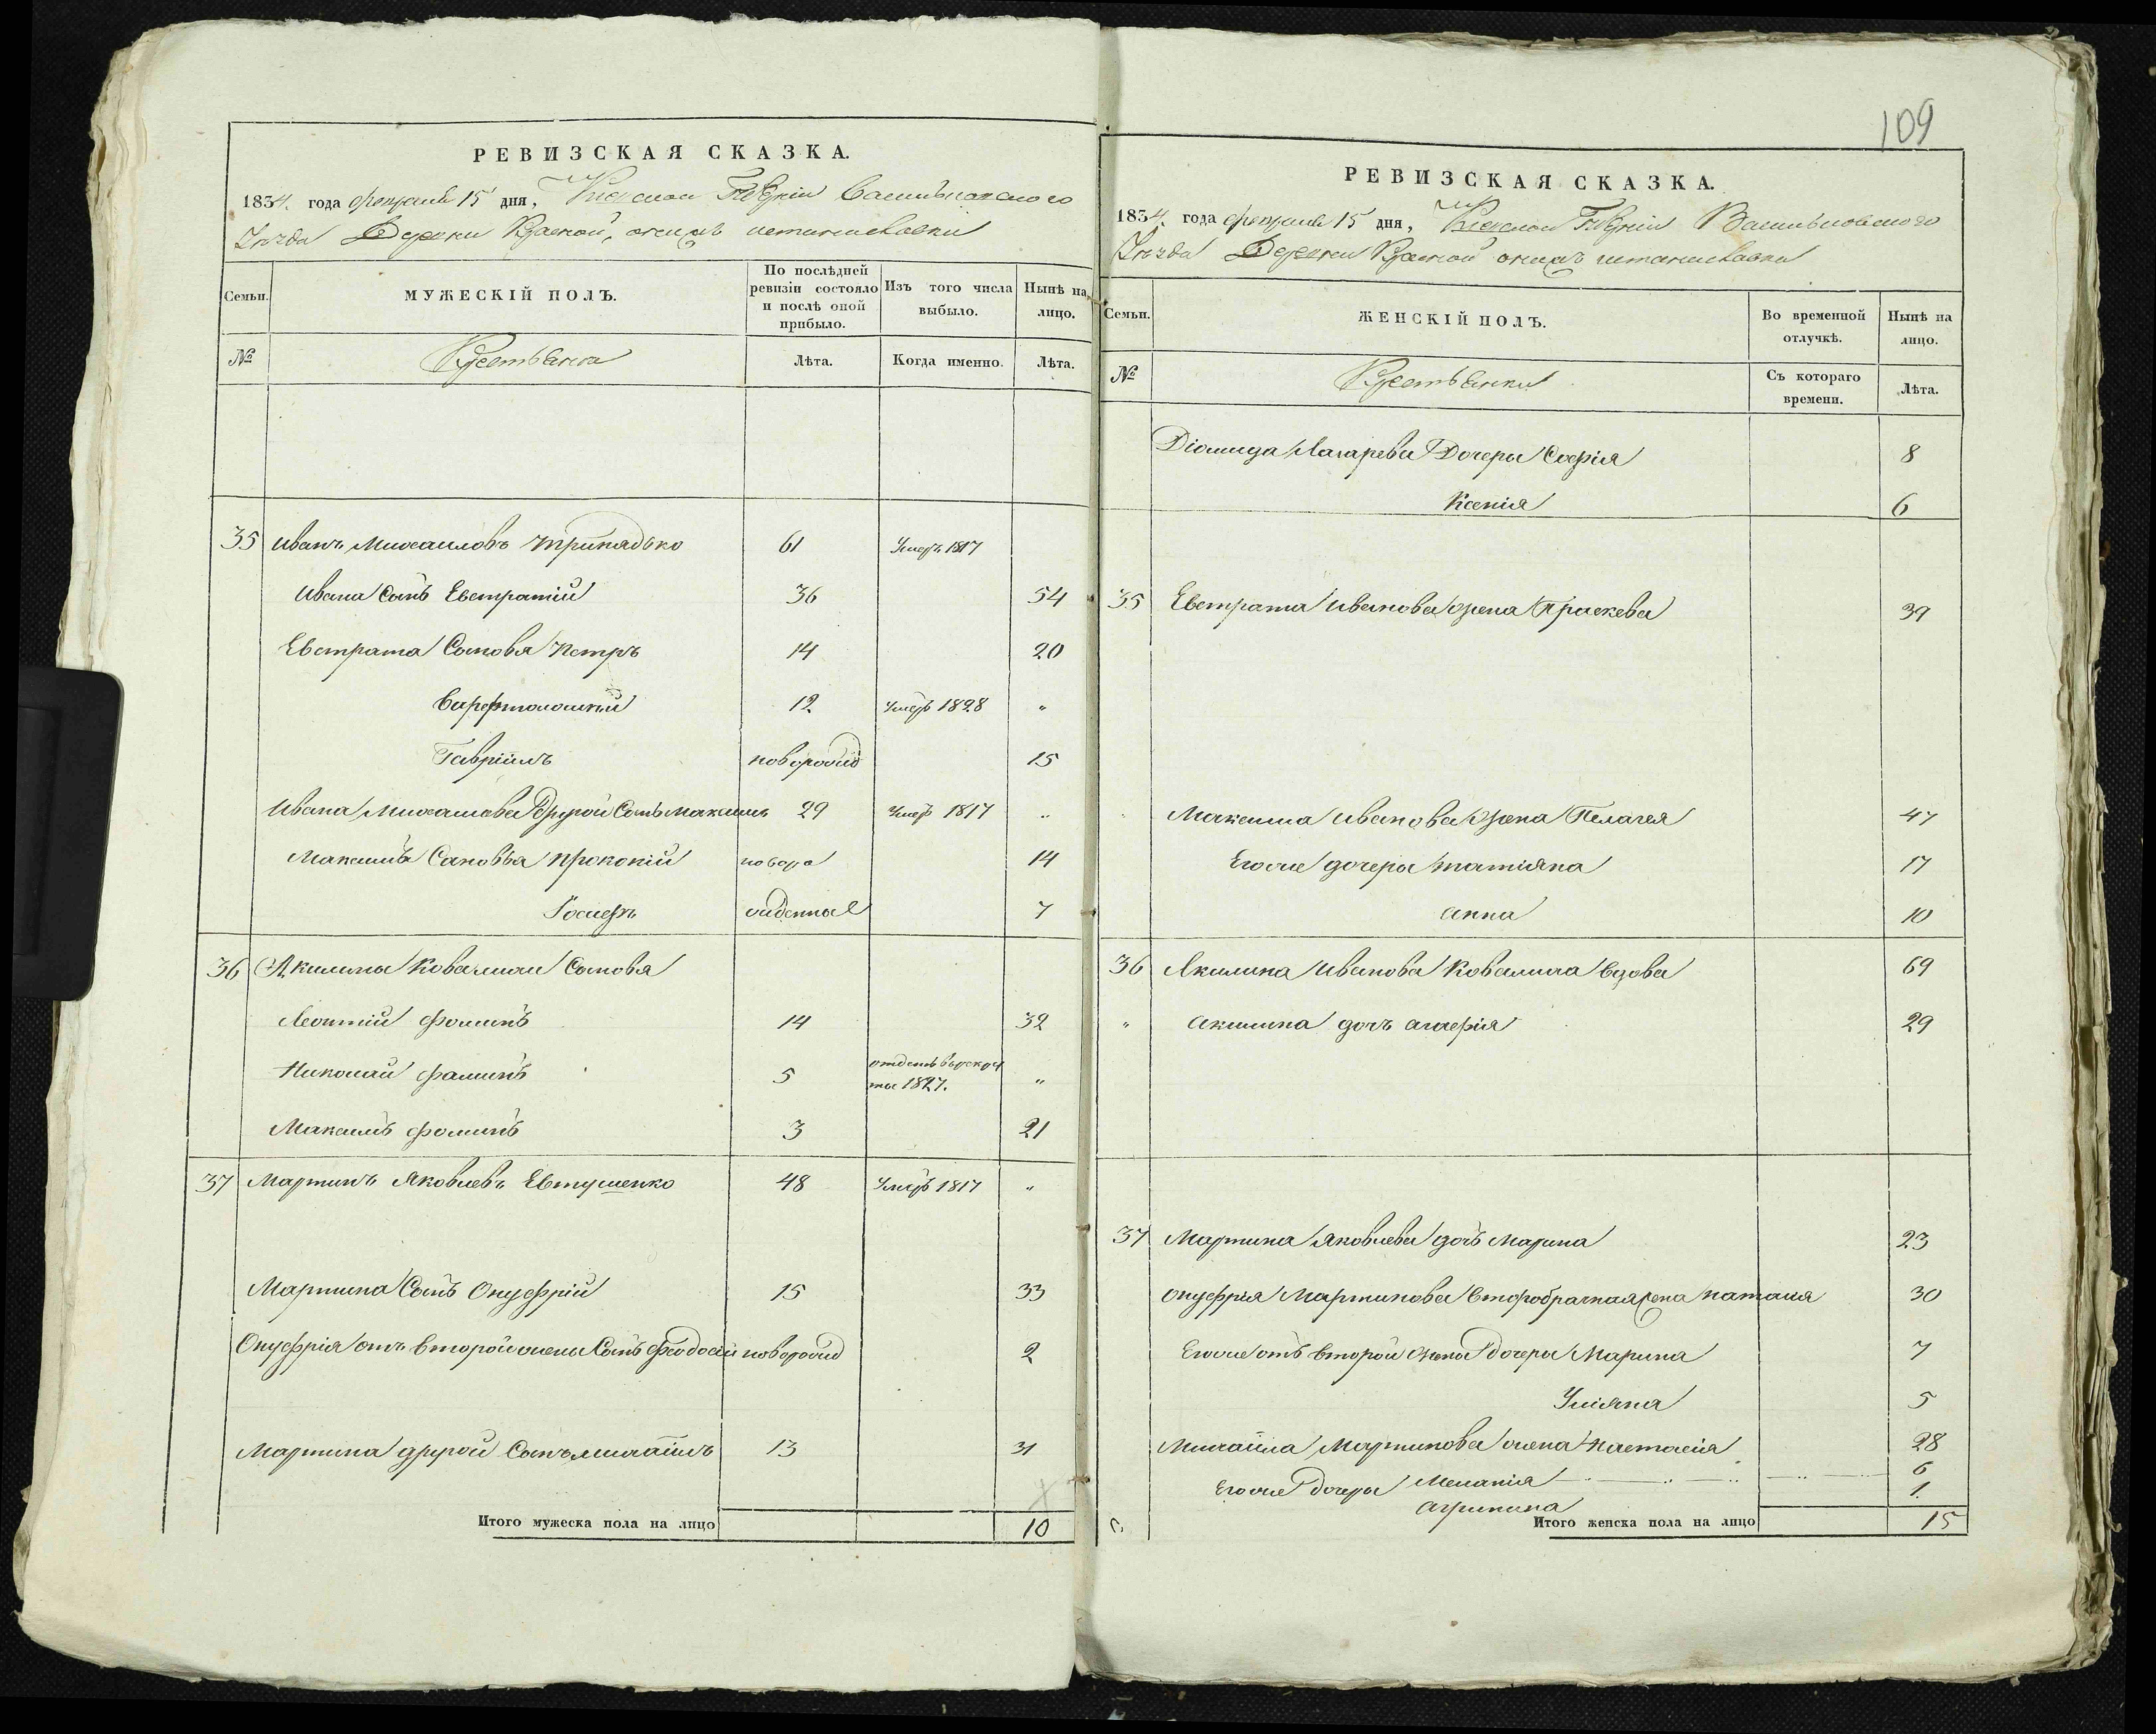 РЕВИЗСКАЯ СКАЗКА.
1834. года февраля 15 дня, Киевской Губерніи Васильковского
Уѣзда Деревни Красной,
Семьи. МУЖЕСКІЙ ПОЛЪ. По послѣдней ревизіи состояло и послѣ оной прибыло. Изъ того числа выбыло. Нынѣ на лицо.
№ Крестьяне Лѣта. Когда именно. Лѣта.
35 Иванъ Михаиловъ 61 Умеръ 1817
Ивана Сынъ Евстратій 36 54
Евстрата Сыновья Петръ 14 20
Варфтоломѣй 12 Умеръ 1828 "
Гавріилъ новорожд 15
Ивана Михаилова Другой Сынъ Максимъ 29 Умеръ 1817 "
Максима Сыновья Прокопій новоро 14
Іосифъ жденные 7
36 Акилины Ковалихи Сыновья
Леонтій Фоминъ 14 32
Николай Фоминъ 5 отданъ въ рекру
ты 1827. "
Максимъ Фоминъ 3 21
37 Мартинъ Яковлевъ Евтушенко 48 Умеръ 1817 "
Мартина Сынъ Онуфрій 15 33
Онуфрія отъ второй жены Сынъ Феодосій новорожд 2
Мартина другой Сынъ Михаилъ 13 31
Итого мужеска пола на лицо 10
109
РЕВИЗСКАЯ СКАЗКА.
1834. года февраля 15 дня, Киевской Губерніи Васильковского
Уѣзда Деревни Красной
Семьи. ЖЕНСКІЙ ПОЛЪ. Во временной отлучкѣ. Нынѣ на лицо.
№ Крестьянки Съ котораго времени. Лѣта.
Діомида Лазарева Дочери Софія 8
Ксенія 6
35 Евстрата Иванова жена Праскева 39
Максима Иванова жена Пелагея 47
Егоже дочери Татіяна 17
Анна 10
36 Акилина Иванова Ковалиха вдова 69
" Акилина дочь Агафія 29
37 Мартина Яковлева дочь Марина 23
Онуфрія Мартинова второбрачная жена Наталия 30
Егоже отъ второй жены дочери Марина 7
Уліяна 5
Михаила Мартинова жена Настасія 28
Егоже дочери Меланія 6
Агрипина 1
Итого женска пола на лицо 15